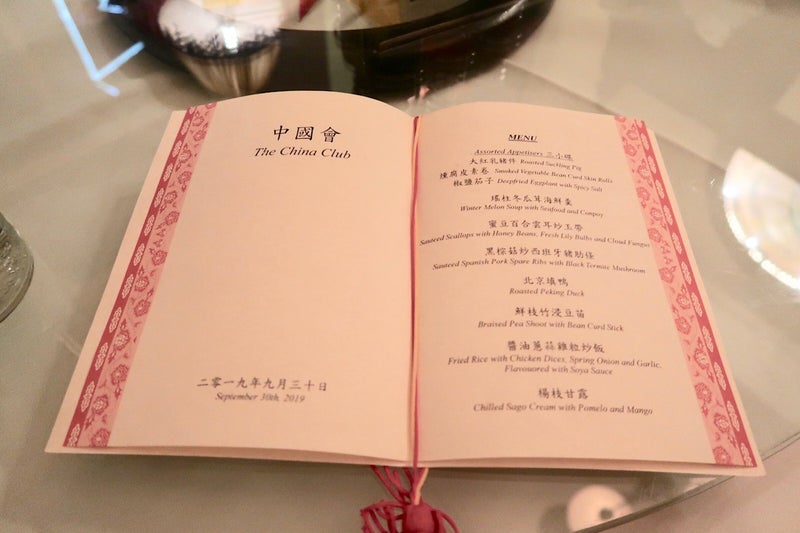 中國會
The China Club
二零一九年九月三十日
September 30th, 2019
MENU
Assorted Appetisers 三小碟
大紅乳豬件 Roasted Suckling Pig
燻腐皮素卷 Smoked Vegetable Bean Curd Skin Rolls
椒鹽茄子 Deepfried Eggplant with Spicy Salt
瑤柱冬瓜茸海鮮羹
Winter Melon Soup with Seafood and Conpoy
蜜豆百合雲耳炒玉帶
Sauteed Scallops with Honey Beans, Fresh Lily Bulbs and Cloud Fungus
黑棕菇炒西班牙豬肋條
Sauteed Spanish Pork Spare Ribs with Black Termite Mushroom
北京填鴨
Roasted Peking Duck
鮮枝竹浸豆苗
Braised Pea Shoot with Bean Curd Stick
醬油蔥蒜雞粒炒飯
Fried Rice with Chicken Dices, Spring Onion and Garlic,
Flavoured with Soya Sauce
楊枝甘露
Chilled Sago Cream with Pomelo and Mango